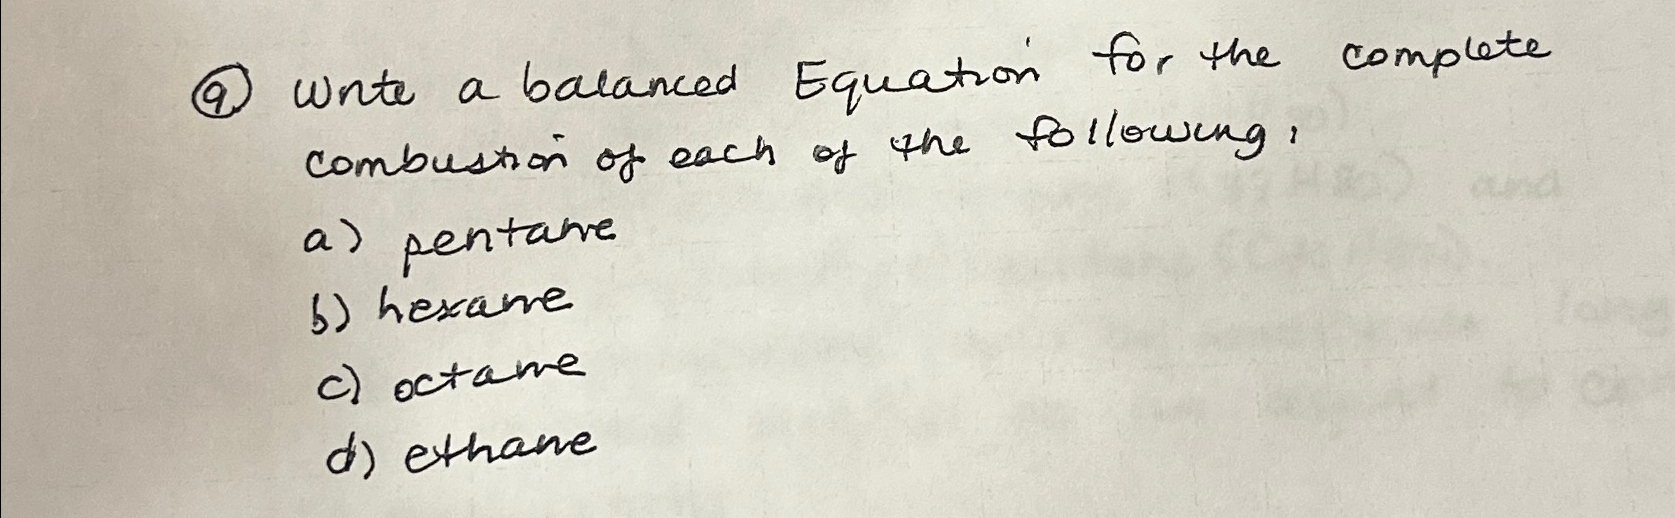 9) Write a balanced Equation for the complete
combustion of each of the following,
a) pentane
b) hexane
c) octane
d) ethane